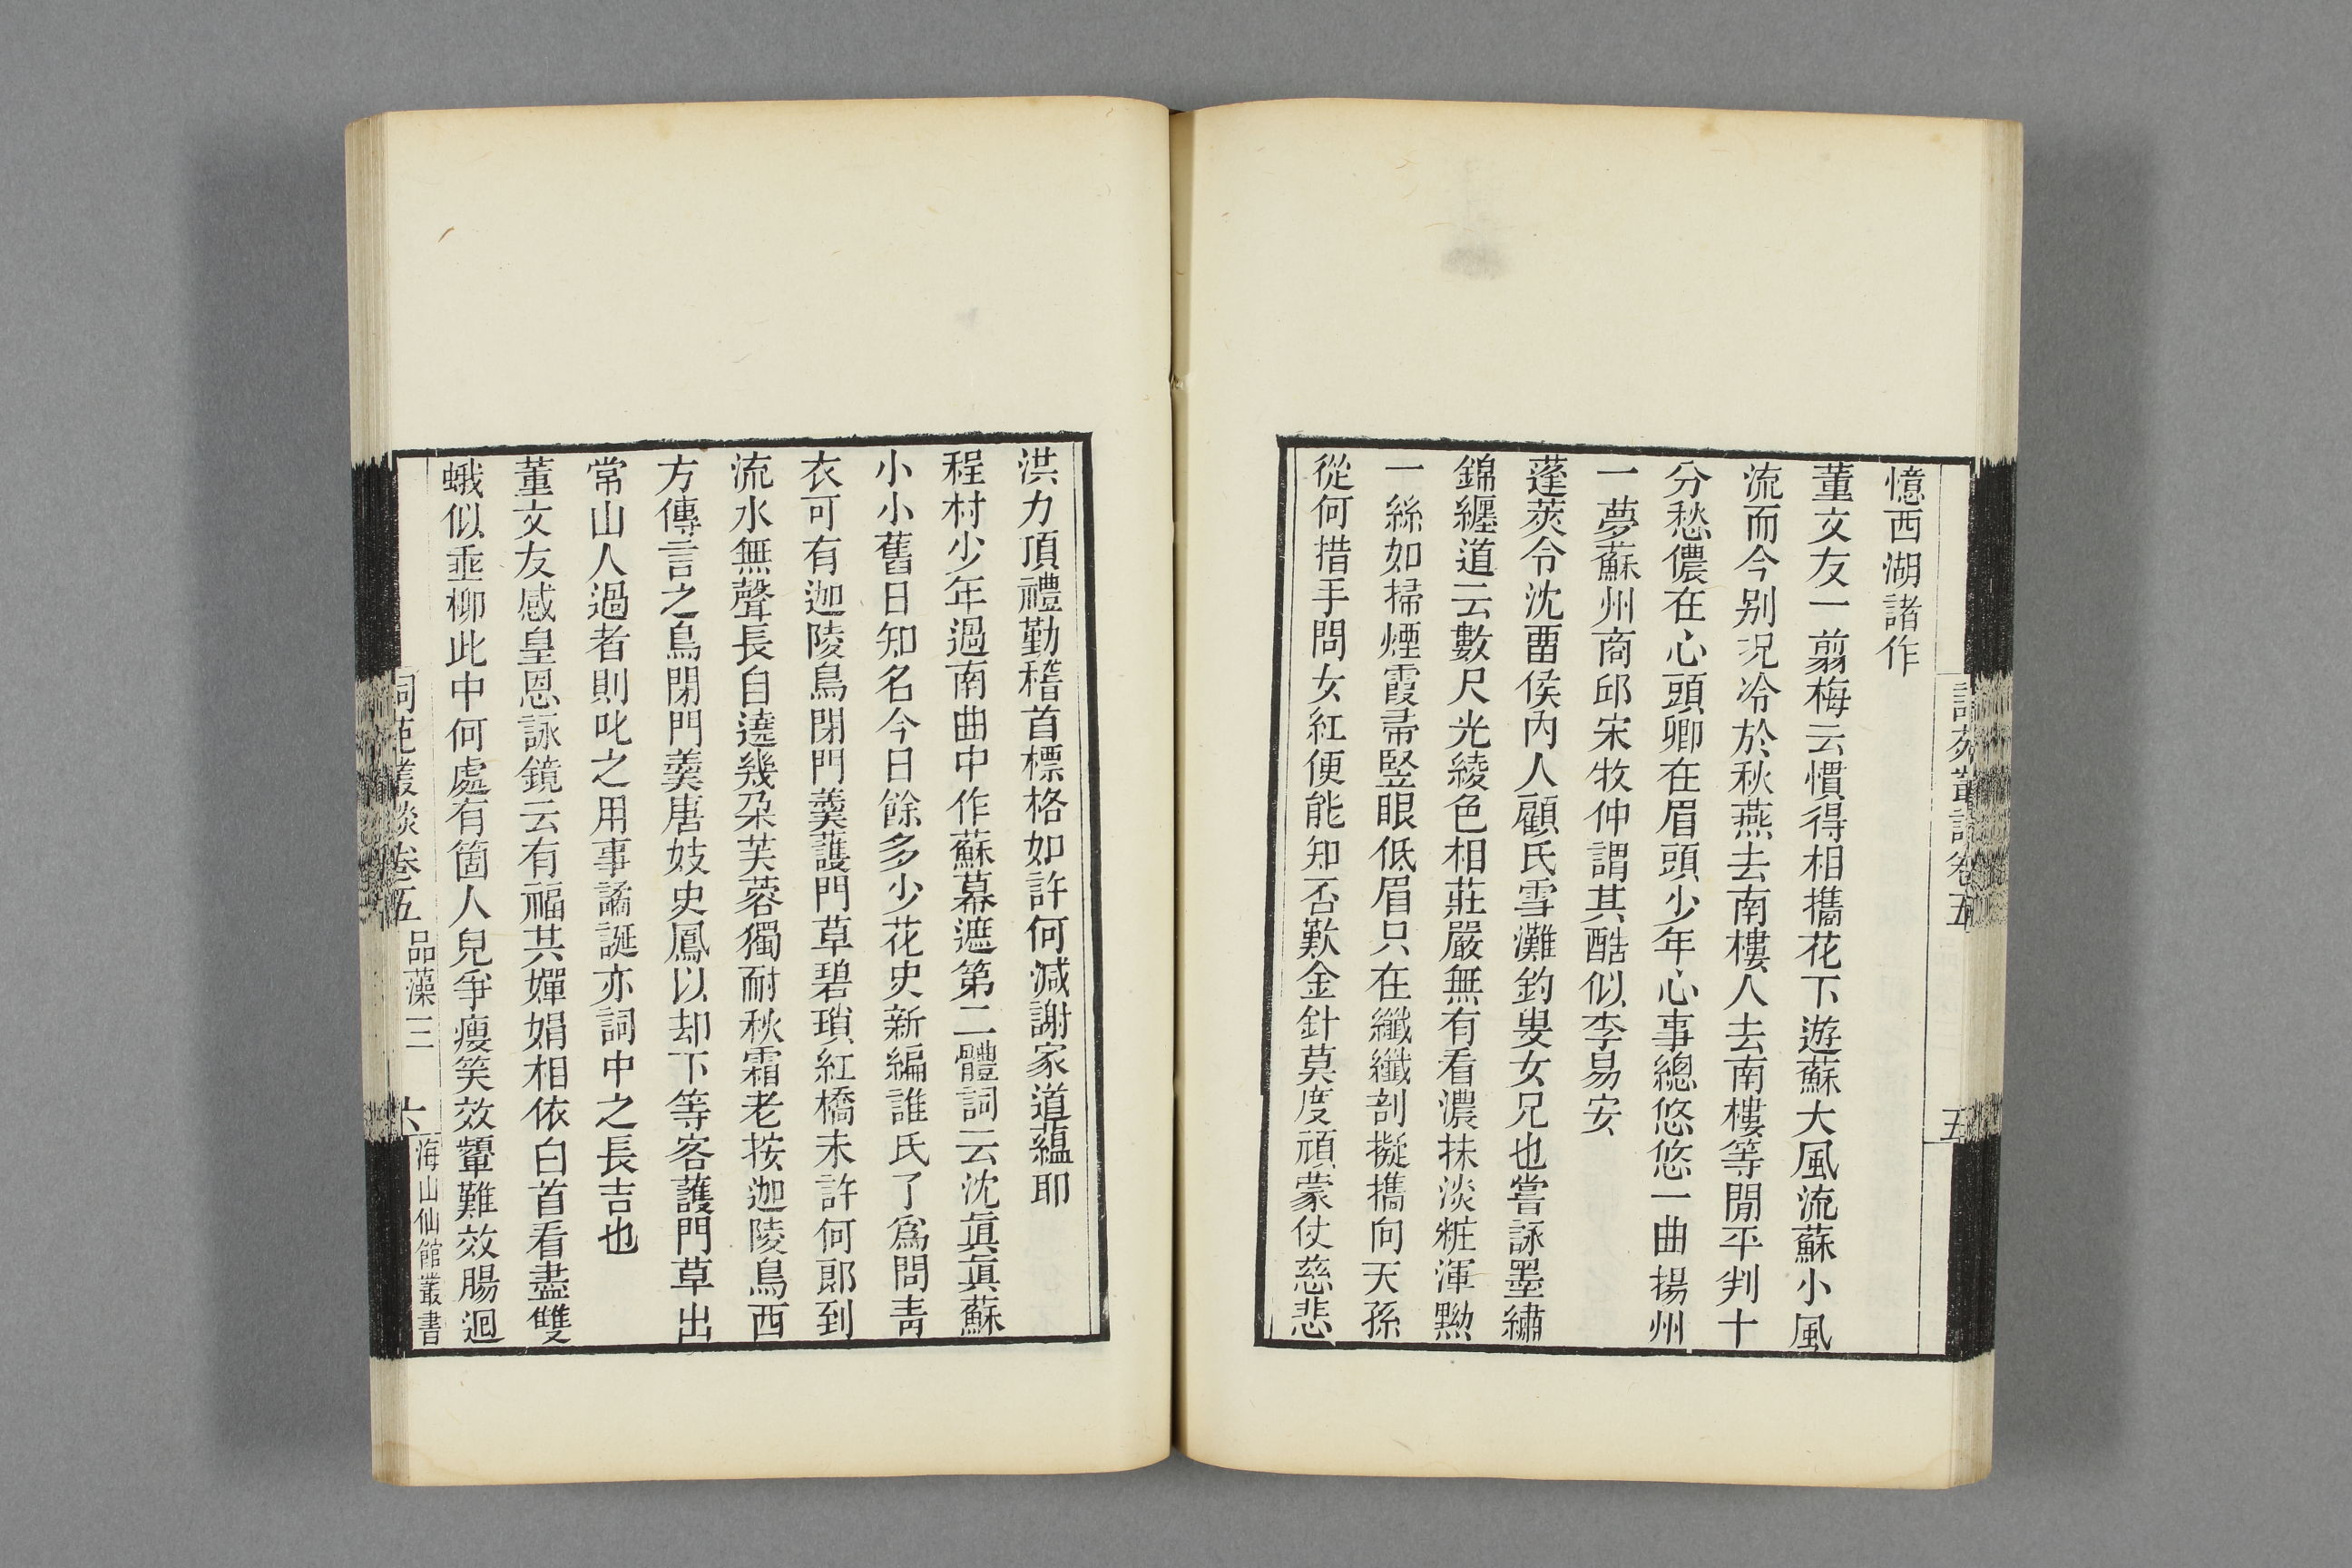 憶西湖諸作
董文友一翦梅云慣得相攜花下遊蘇大風流蘇小風
流而今别況冷於秋燕去南樓人去南樓等閒平判十
分愁儂在心頭卿在眉頭少年心事總悠悠一曲揚州
一夢蘇州商邱宋牧仲謂其酷似李易安
蓬萊令沈畱侯內人顧氏雪灘釣叟女兄也嘗詠墨繡
錦纏道云數尺光綾色相莊嚴無有看濃抹淡粧渾黝
一絲如掃煙霞帚竪眼低眉只在纖纖剖擬攜向天孫
從何措手問女紅便能知否歎金針莫度頑蒙仗慈悲
詞苑叢談卷五
五
洪力頂禮勤稽首標格如許何減謝家道蘊耶
程村少年過南曲中作蘇幕遮第二體詞云沈眞眞蘇
小小舊日知名今日餘多少花史新編誰氏了爲問靑
衣可有迦陵鳥閉門羹護門草碧瑣紅橋未許何郎到
流水無聲長自遶幾朶芙蓉獨耐秋霜老按迦陵鳥西
方傳言之鳥閉門羹唐妓史鳳以却下等客護門草出
常山人過者則叱之用事譎誕亦詞中之長吉也
董文友感皇恩詠鏡云有福共嬋娟相依白首看盡雙
蛾似垂柳此中何處有箇人兒爭瘦笑效顰難效腸迴
詞苑叢談卷五
品藻三
六
海山仙館叢書